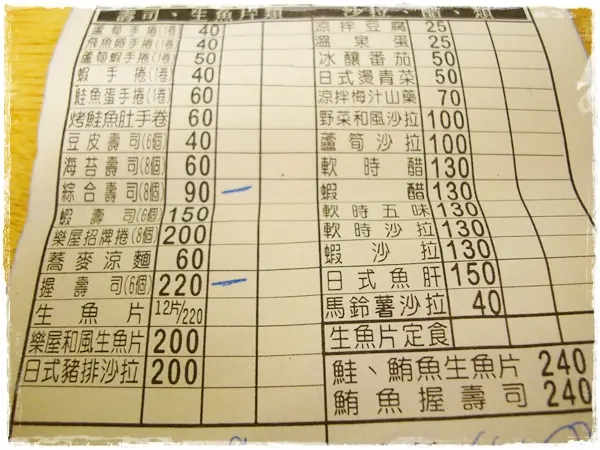 壽司、生魚片類
蘆筍手捲(1卷) 40
飛魚卵手捲(1卷) 40
蘆筍蝦手捲(1卷) 50
蝦手捲(1卷) 40
鮭魚蛋手捲(1卷) 60
烤鮭魚肚手卷 60
豆皮壽司(6個) 40
海苔壽司(8個) 60
綜合壽司(8個) 90
蝦壽司(6個) 150
樂屋招牌捲(8個) 200
蕎麥涼麵 60
握壽司(6個) 220
生魚片 12片/220
樂屋和風生魚片 200
日式豬排沙拉 200
沙拉、醋、類
涼拌豆腐 25
溫泉蛋 25
冰釀番茄 50
日式燙青菜 50
涼拌梅汁山藥 70
野菜和風沙拉 100
蘆筍沙拉 100
軟時醋 130
蝦醋 130
軟時五味 130
軟時沙拉 130
蝦沙拉 130
日式魚肝 150
馬鈴薯沙拉 40
生魚片定食
鮭、鮪魚生魚片 240
鮪魚握壽司 240